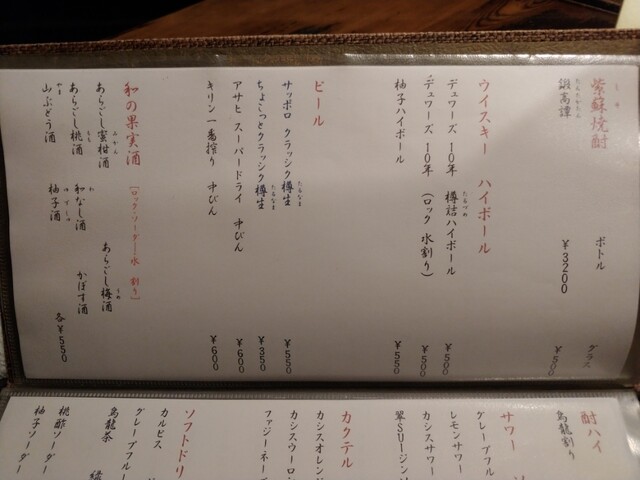 紫蘇焼酎
しそ
ボトル
グラス
鍛高譚
たんたかたん
¥3200
¥500
ウイスキー ハイボール
デュワーズ 10年 樽詰ハイボール
たるづめ
¥500
デュワーズ 10年 (ロック 水割り)
¥500
柚子ハイボール
¥550
ビール
サッポロ クラッシク樽生
たるなま
¥550
ちょこっとクラッシク樽生
たるなま
¥350
アサヒ スーパードライ 中びん
¥600
キリン一番搾り 中びん
¥600
和の果実酒 [ロック・ソーダー・水 割り]
あらごし蜜柑酒
みかん
あらごし梅酒
うめ
あらごし桃酒
もも
和なし酒
わ
かぼす酒
山ぶどう酒
やま
柚子酒
各¥550
酎ハイ
烏龍割り
サワー
グレープフル
レモンサワー
カシスサワー
翠SUIジン
カクテル
カシスオレン
カシスウーロン
ファジーネー
ソフトドリ
カルピス
グレープフルー
烏龍茶
緑
桃酢ソーダー
柚子ソーダー